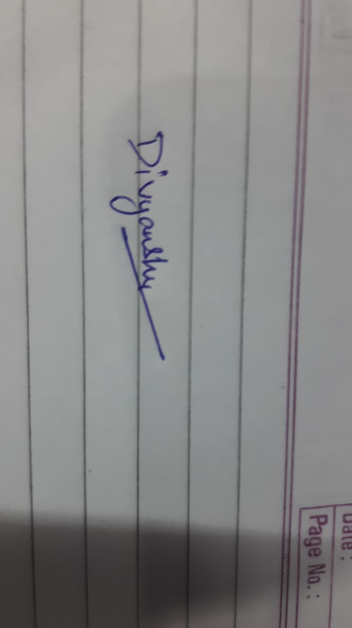 Date :
Page No. :
Divyanshu